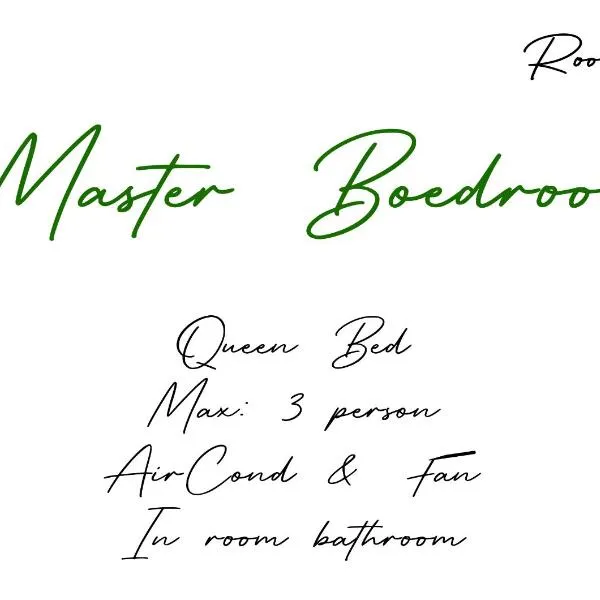 Roo
Master Boedroo
Queen Bed
Max: 3 person
AirCond & Fan
In room bathroom